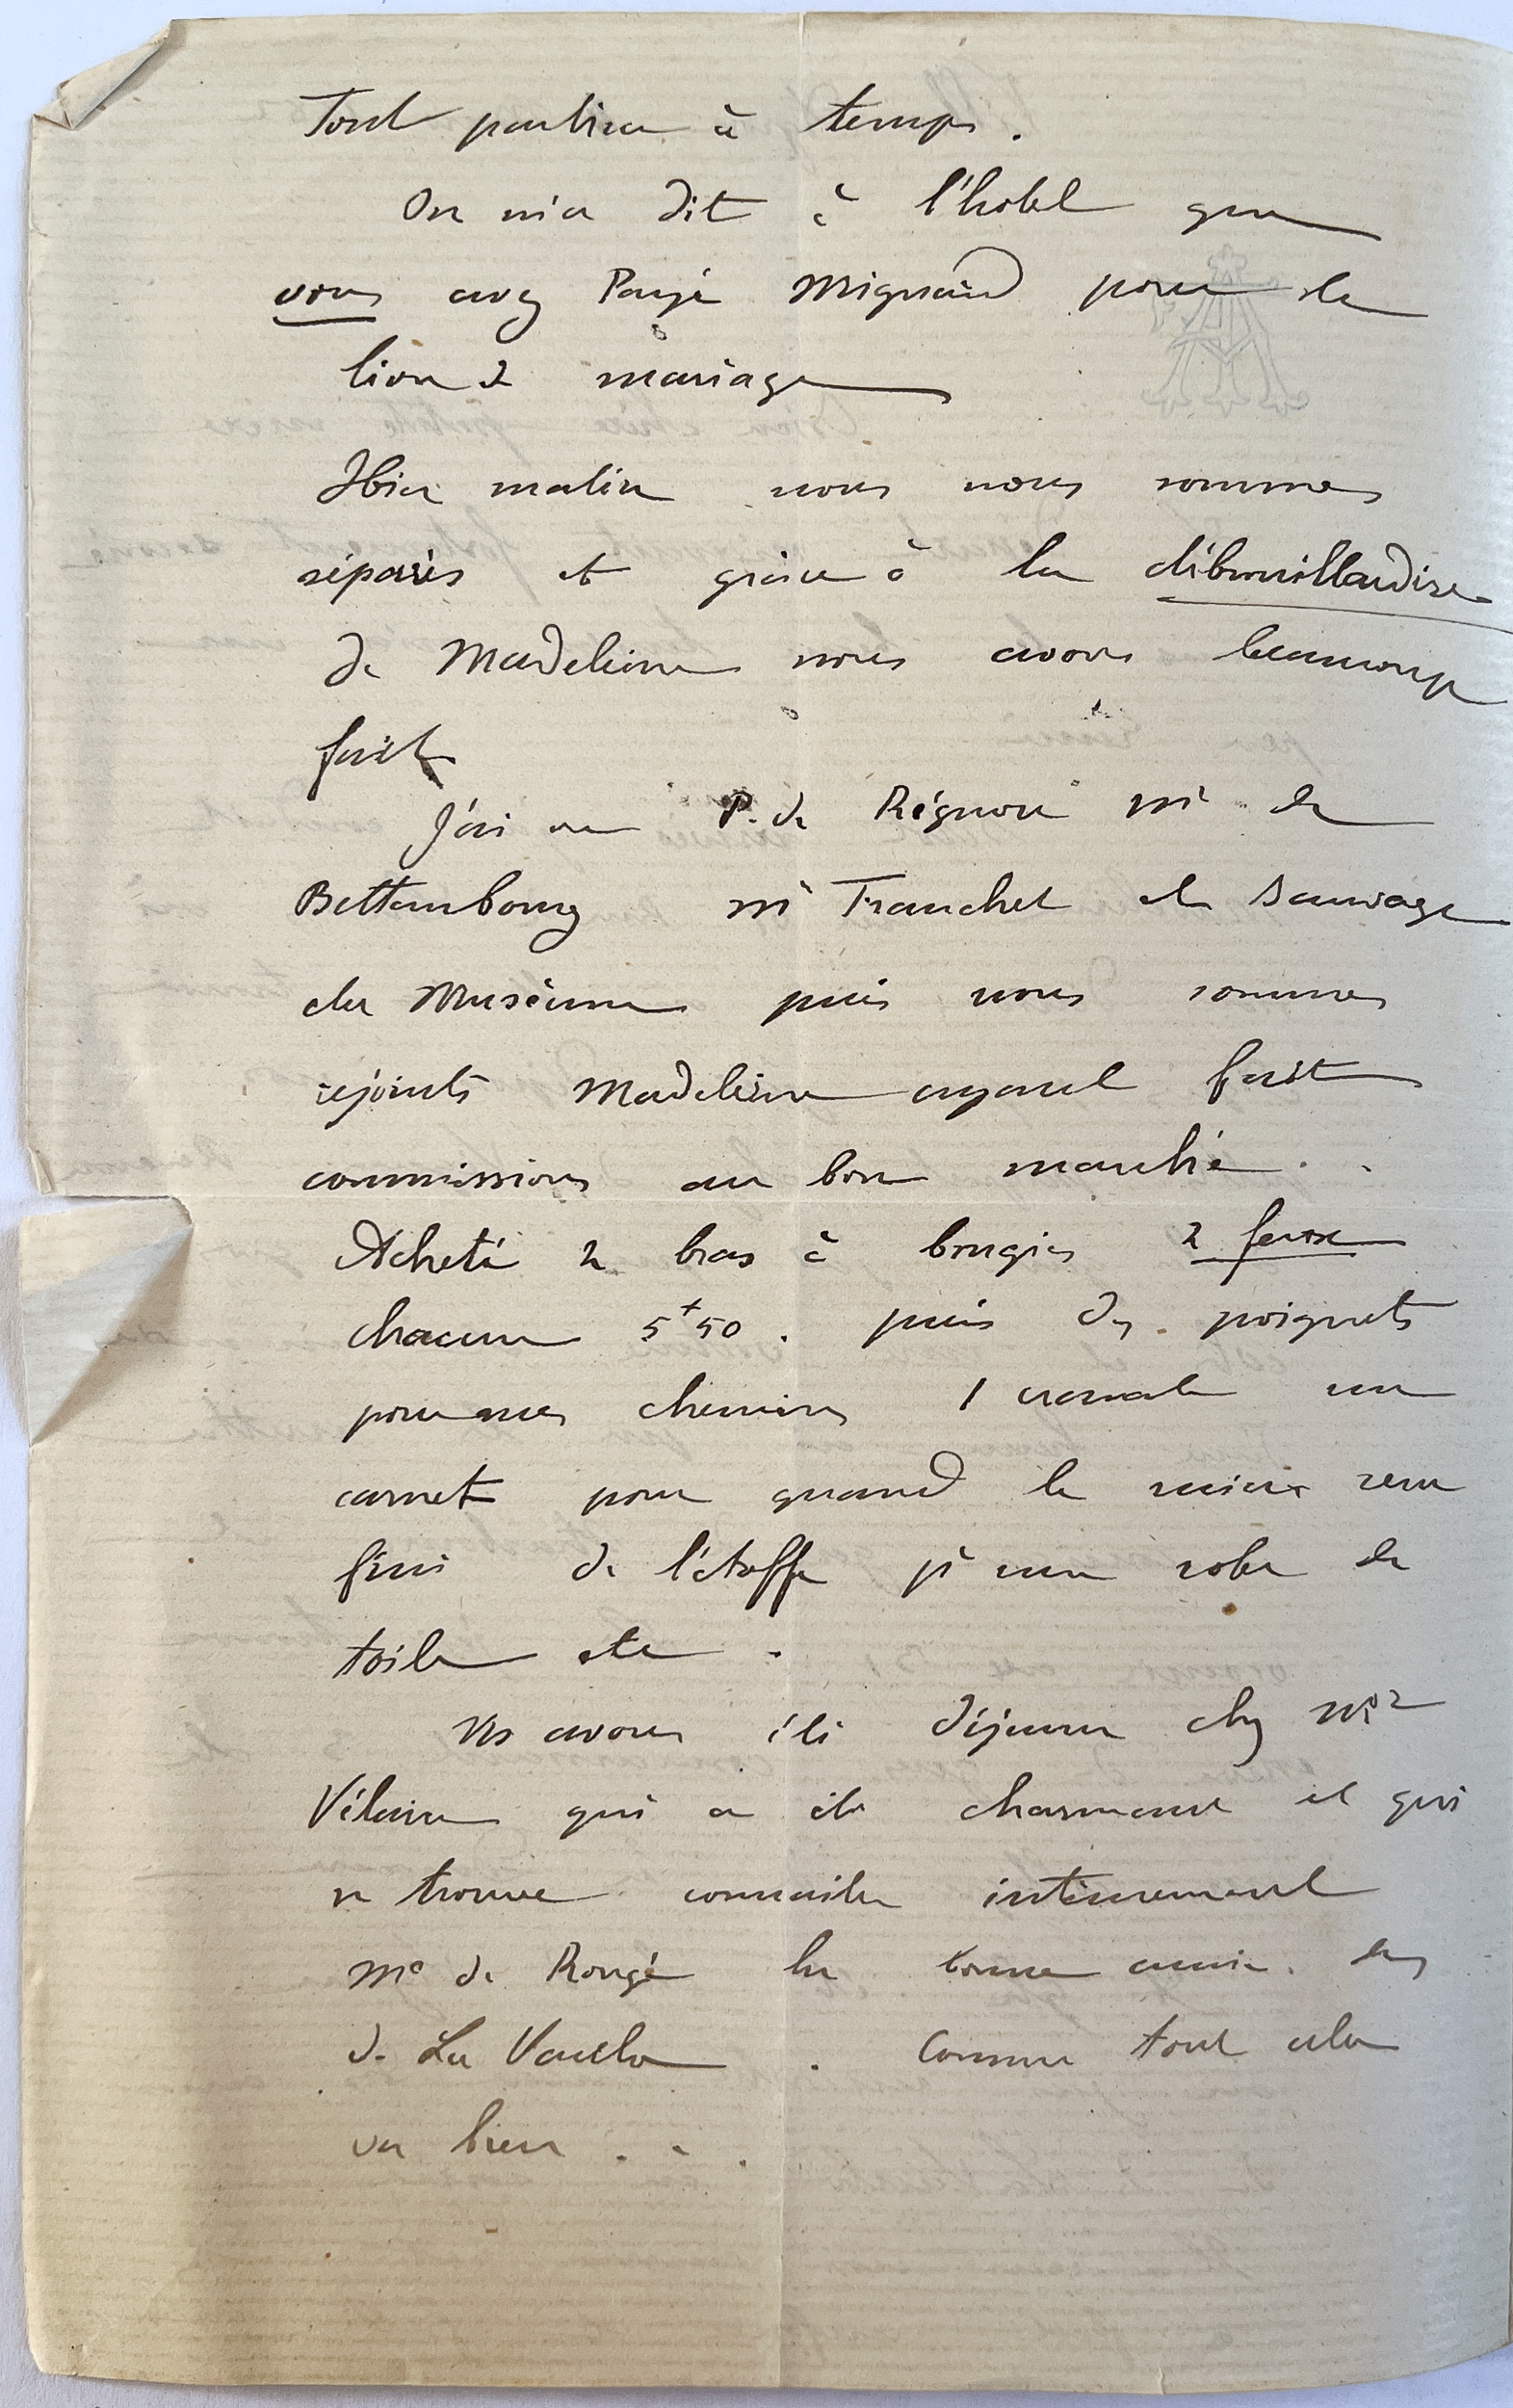 Tout partira à temps.
On m'a dit à l'hotel que
vous avez Payé Mignand pour le
lion 2 mariage
Hier matin nous nous sommes
séparés et grâce à la débrouillardise
de Madeleine nous avons beaucoup
fait
J'ai vu P. de Régnon mr de
Bettembourg mr Franchet et Sauvage
du Muséum puis nous sommes
rejoints Madeleine ayant fait
commissions au bon marché . .
Acheté 2 bras à bougies 2 feux
chacun 5f50. puis des poignets
pour mes chemises 1 cravate un
carnet pour quand le mien sera
fini de l'étoffe pr une robe de
toile etc.
Ns avons été déjeuner chez Mr
Vélain qui a été charmant et qui
se trouve connaitre intimement
Me de Rougé la bonne amie des
de La Vaulx. Comme tout cela
va bien . . .